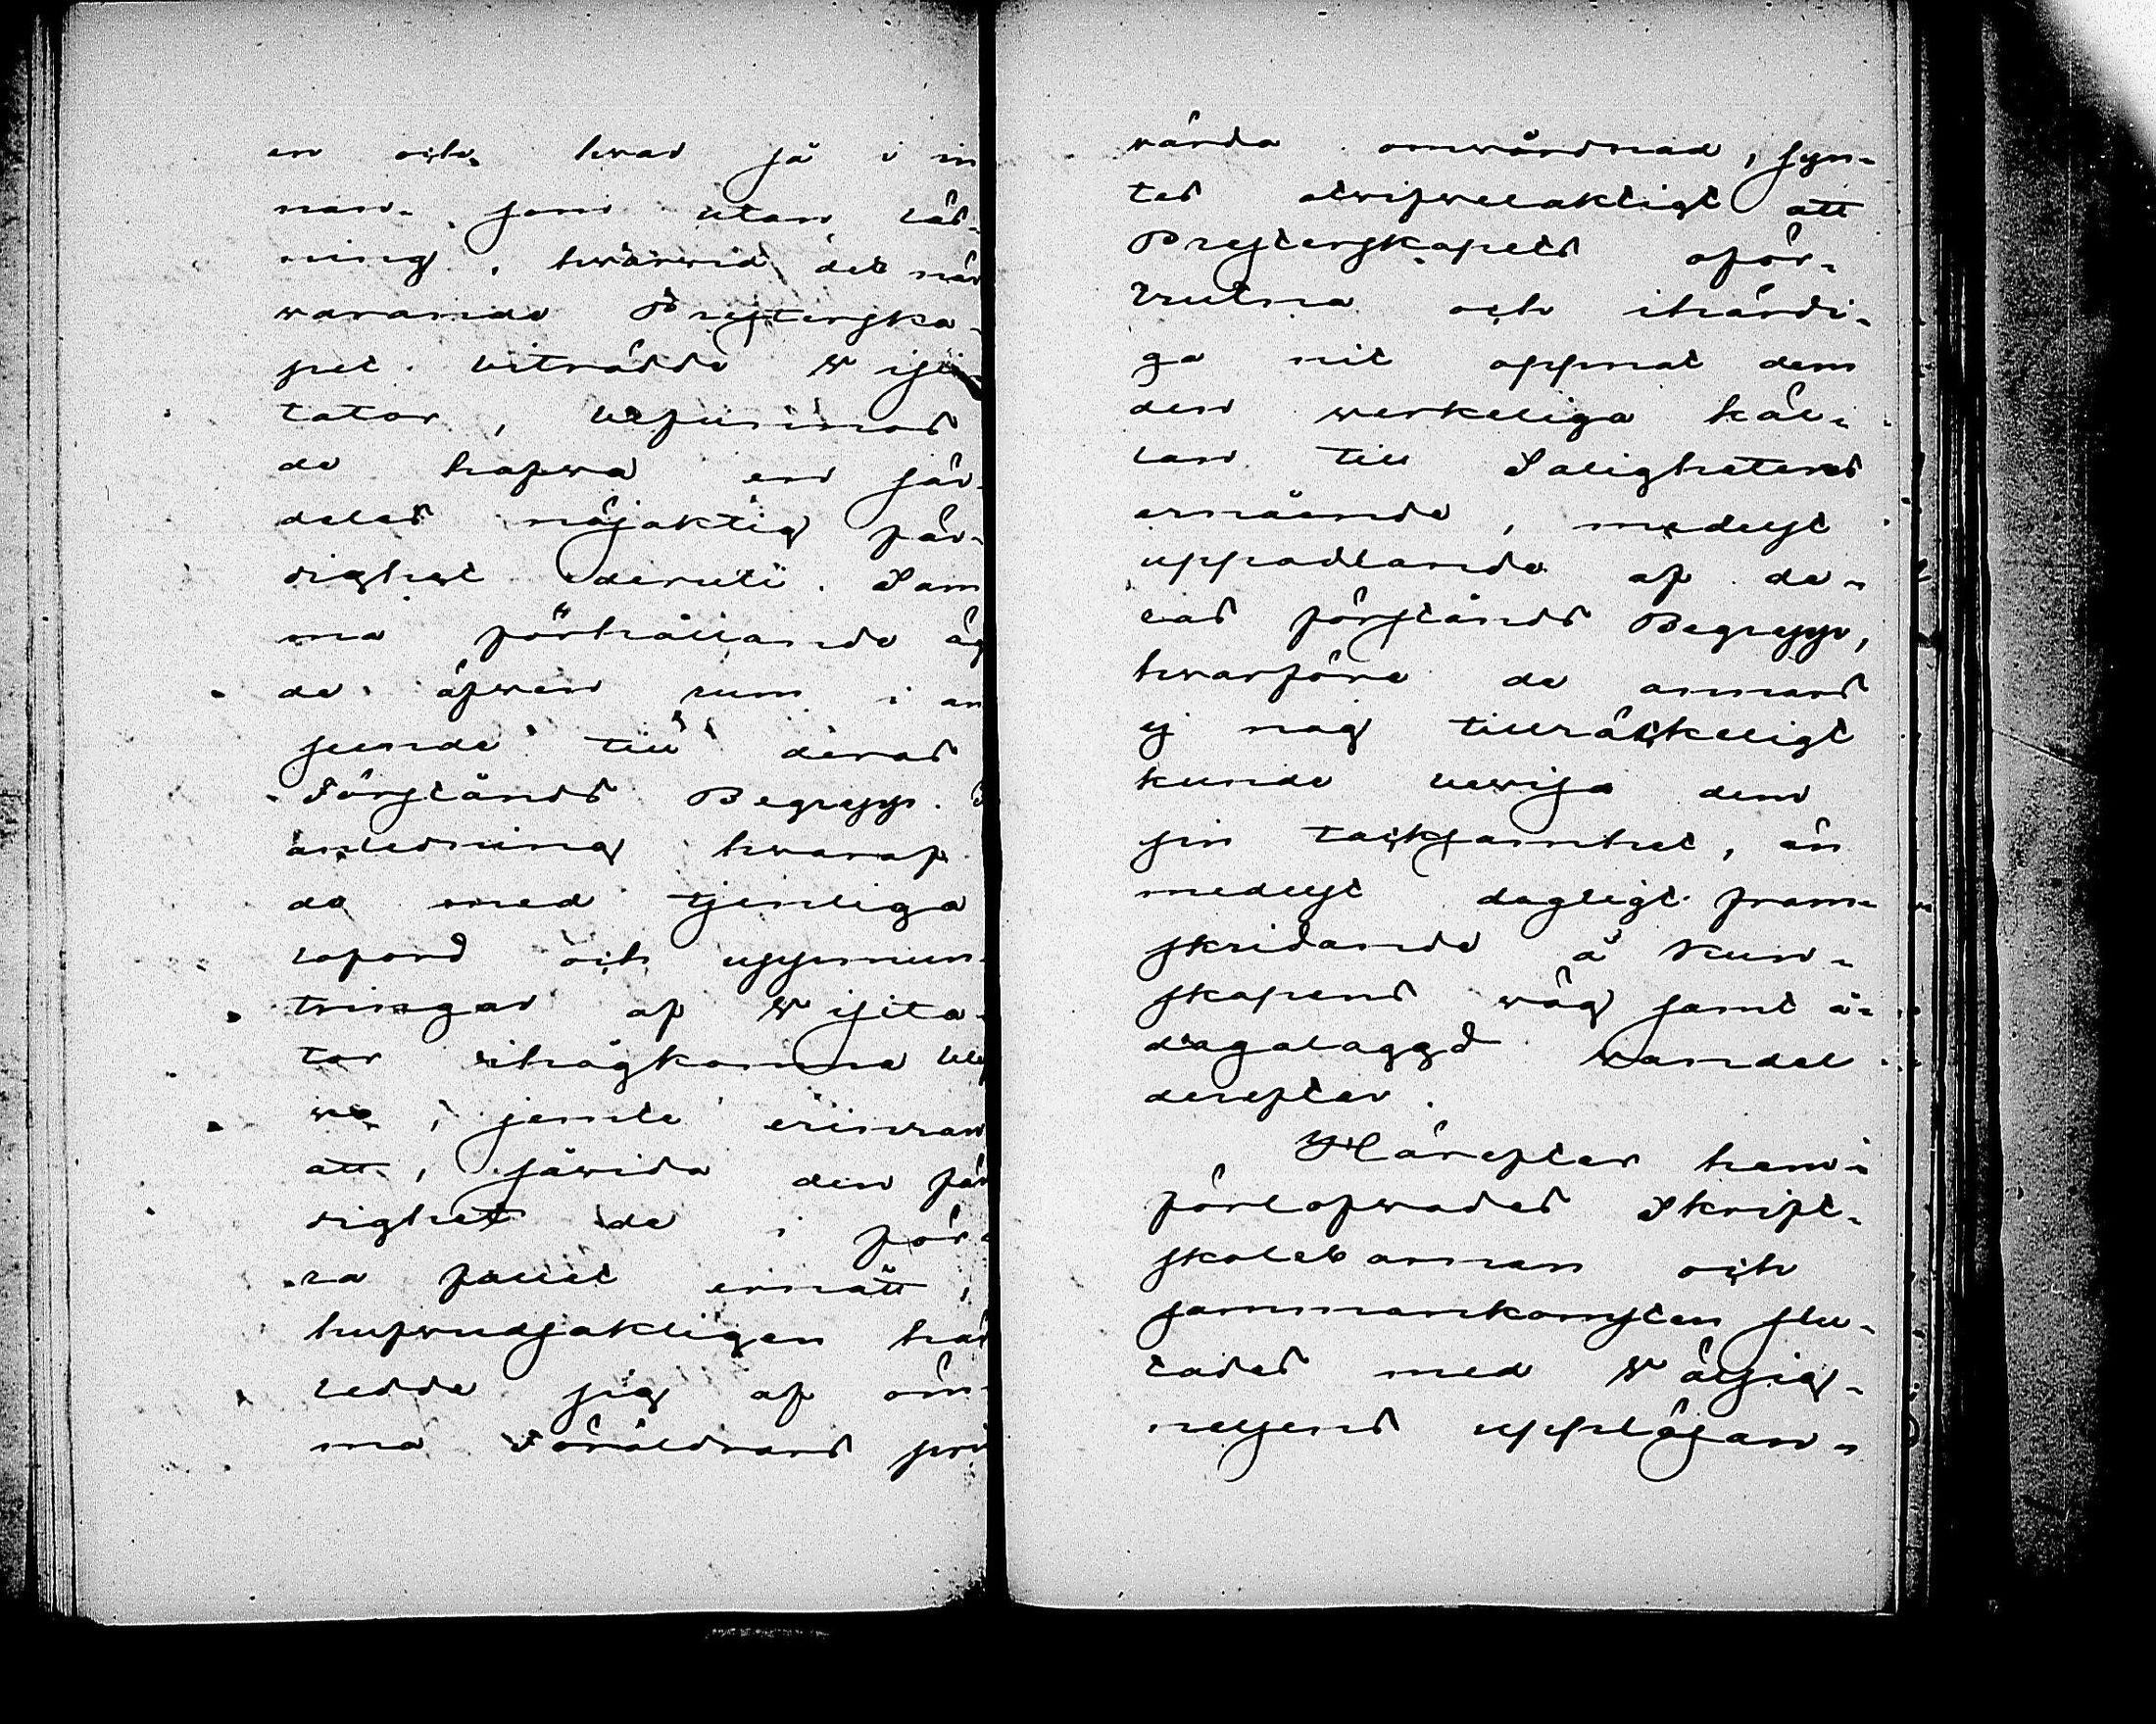 en och hvad så i in
nan- som utan läs-
ning, hwarwid det när
warande Presterska-
pet biträdde Wisi-
tator, befunnos
de hafwa en sär-
deles nöjaktig fär-
dighet deruti. Sam
ma förhållande äg
de äfwen rum i an
seende till deras
Förstånds Begrepp. I
anledning hwaraf
de med tjenliga
loford och uppmun-
tringar af Wisita-
tor ihågkomne blef
wo, jemte erinran
att, såwida den fär
dighet de i för-
ra fallet ernått,
hufwudsakligen här
ledde sig af öm-
ma Föräldrars pri
vårda omwårdnad, syn-
tes otwifwelaktigt att
Presterskapets oför-
trutna och ihärdi-
ga nit öppnat dem
den werkeliga käl-
lan till Salighetens
ernående, medelst
uppodlande af de-
ras förstånds Begrepp,
hwarföre de annars
ej nog tillräckeligt
kunde bewisa dem
sin tacksamhet, än
medelst dagligt fram-
skridande å Kun-
skapens wäg samt å-
dagalaggd wandel
derefter.
Härefter hem-
förlofwades Skrift-
skolebarnen och
sammankomsten slu-
tades med Wälsig-
nelsens uppläsan-